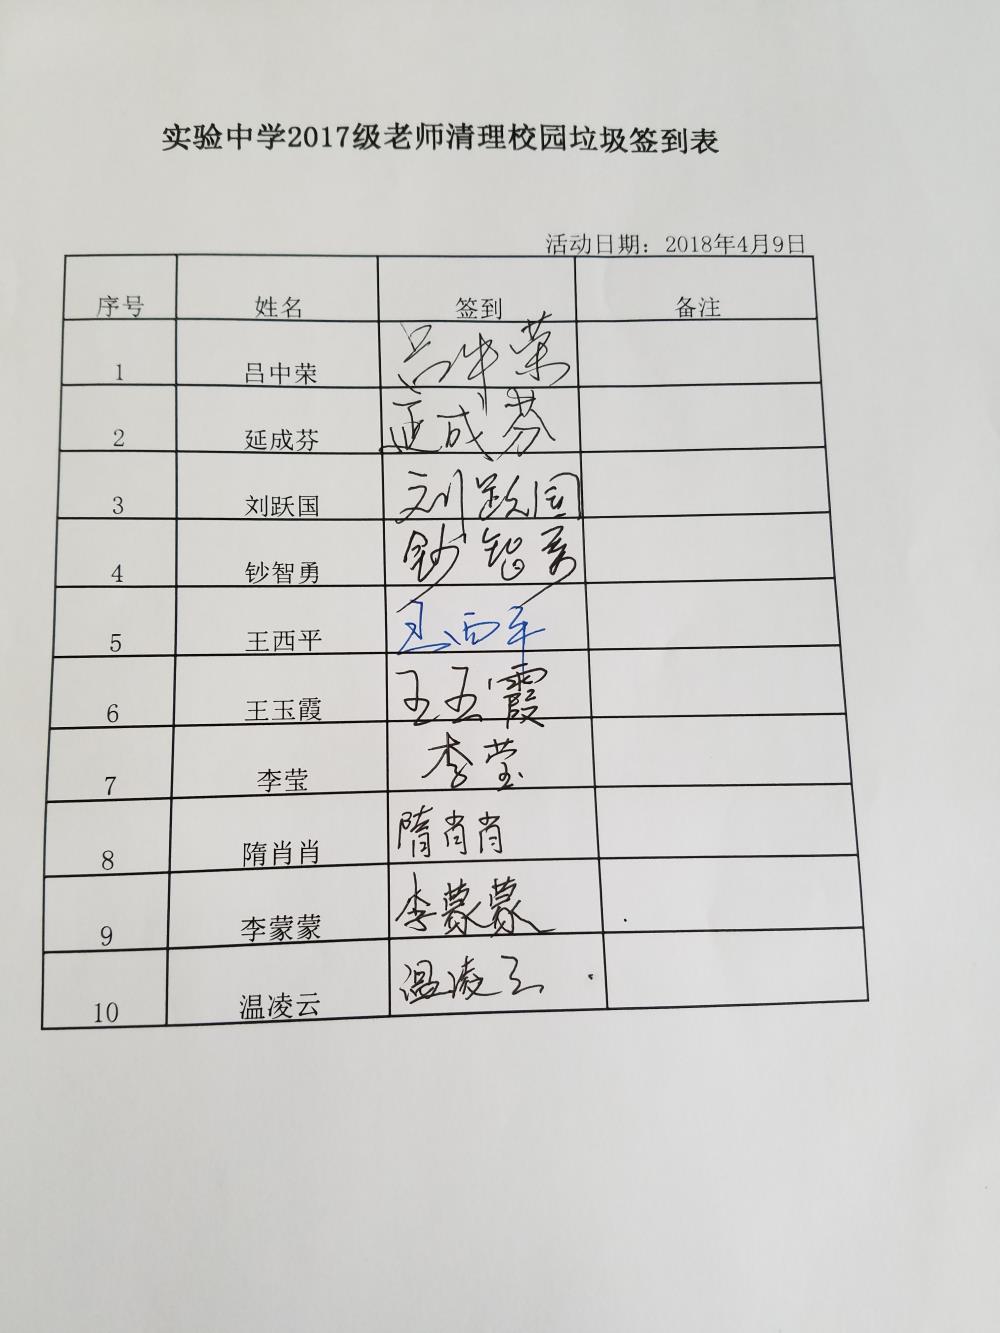 实验中学2017级老师清理校园垃圾签到表
活动日期：2018年4月9日
序号 姓名 签到 备注
1 吕中荣 吕中荣
2 延成芬 延成芬
3 刘跃国 刘跃国
4 钞智勇 钞智勇
5 王西平 王西平
6 王玉霞 王玉霞
7 李莹 李莹
8 隋肖肖 隋肖肖
9 李蒙蒙 李蒙蒙
10 温凌云 温凌云